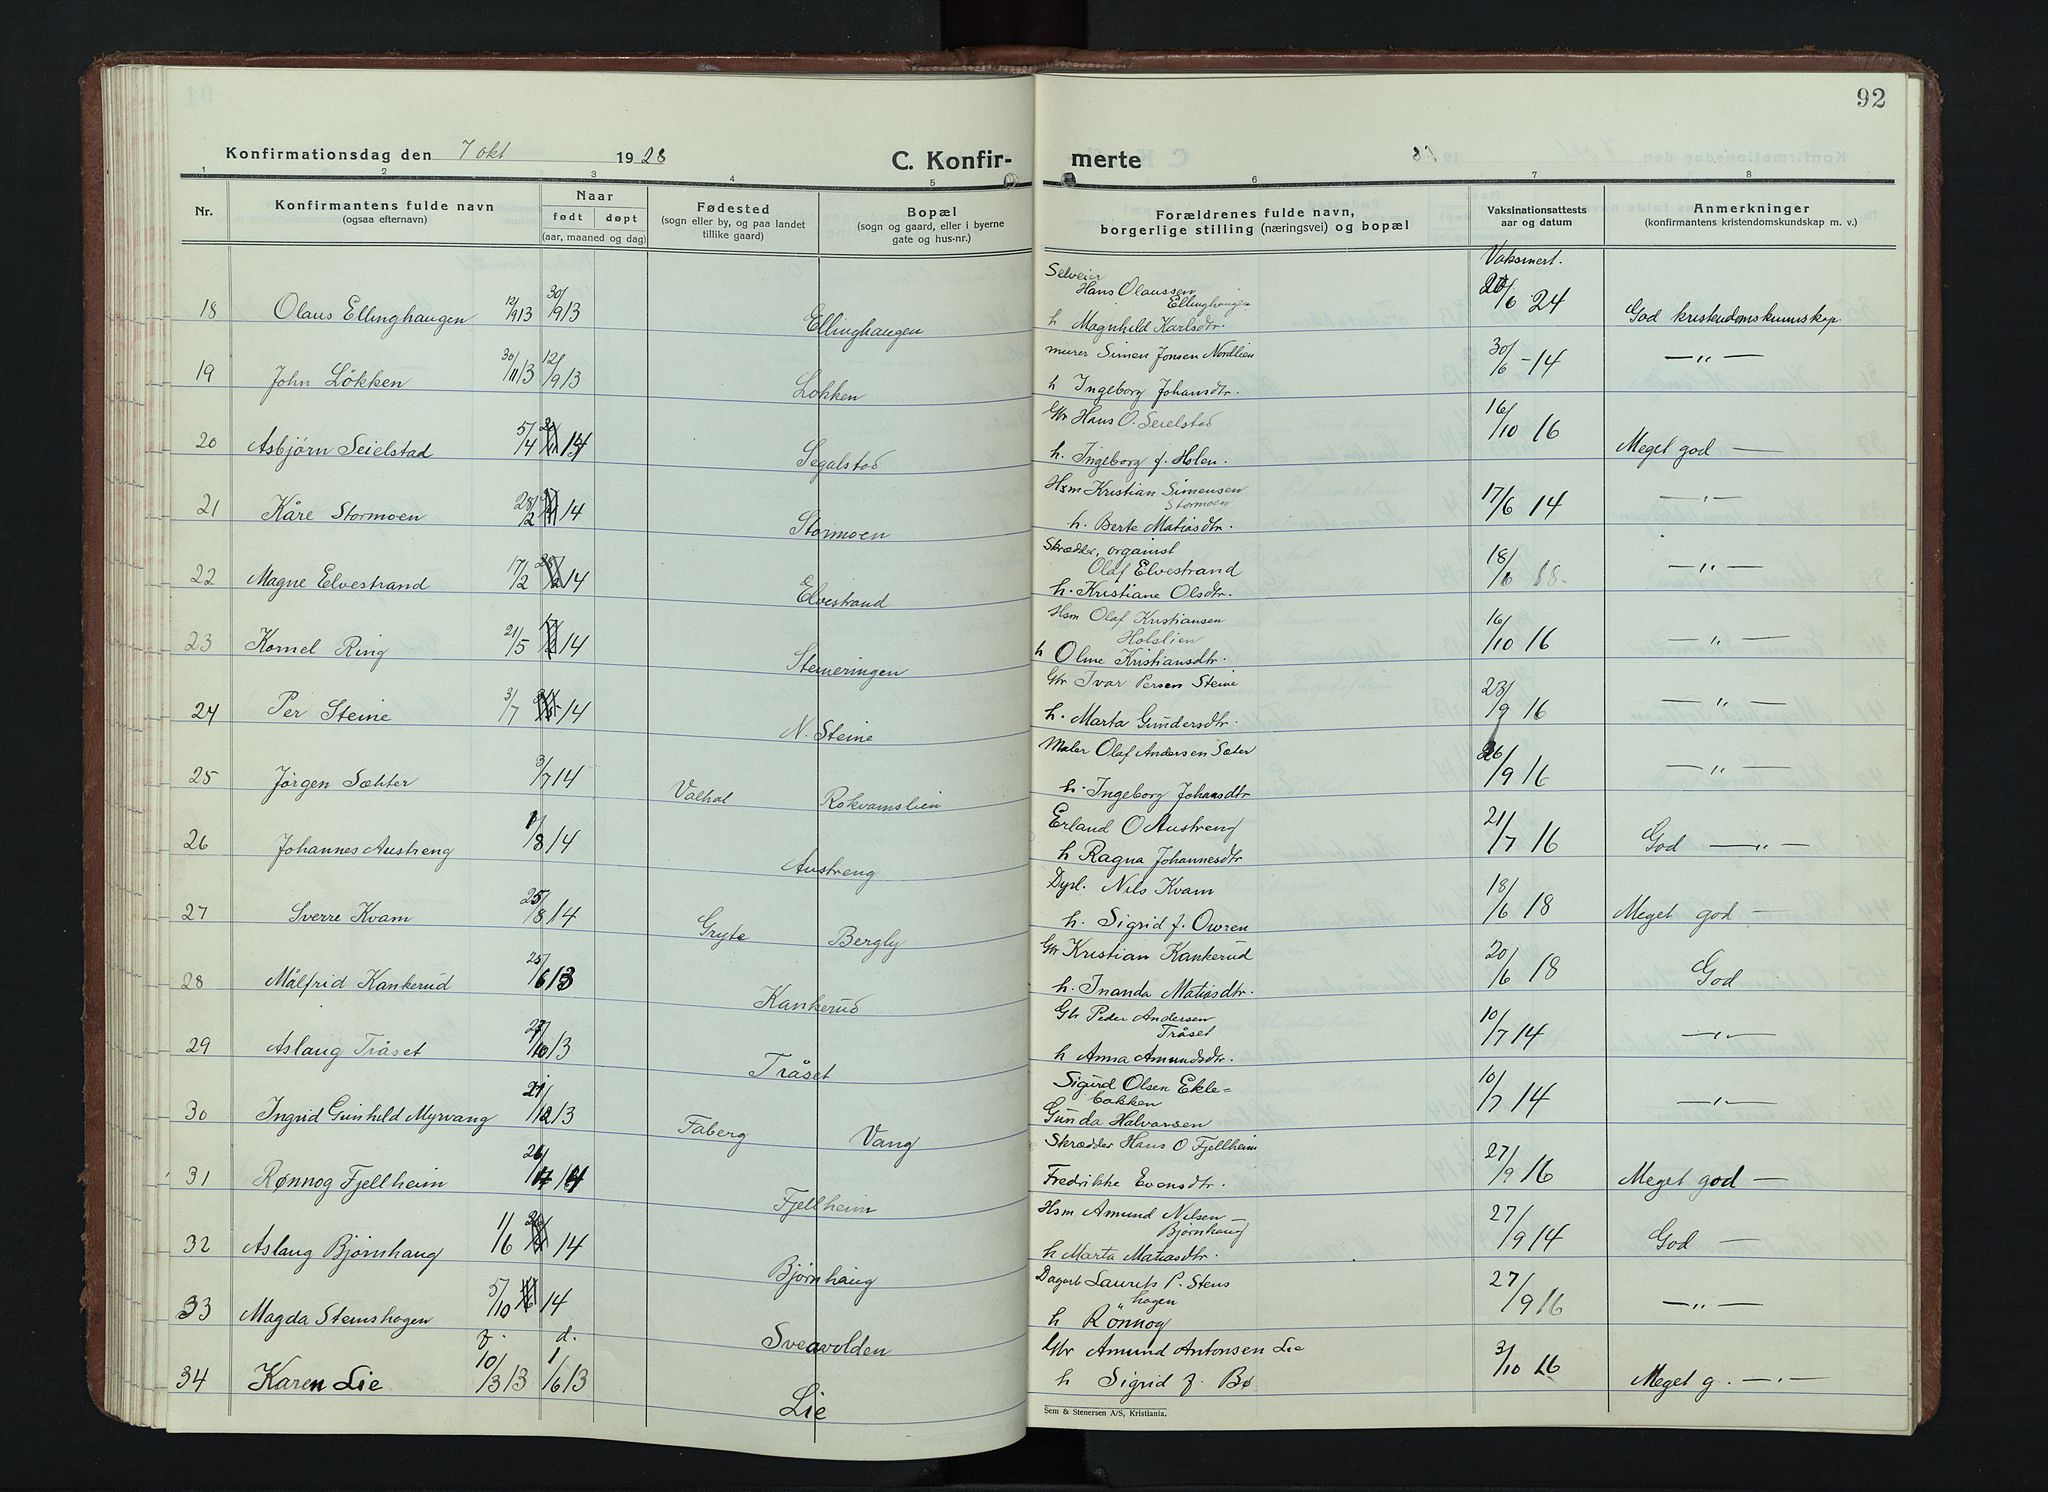 92
Konfirmationsdag den 7 okt 1928 C. Konfir- merte
1 2 3 4 5 6 7 8
Nr. Konfirmantens fulde navn (ogsaa efternavn) Naar født døpt (aar, maaned og dag) Fødested (sogn eller by, og paa landet tillike gaard) Bopæl (sogn og gaard, eller i byerne gate og hus-nr.) Forældrenes fulde navn, borgerlige stilling (næringsvei) og bopæl Vaksinationsattests aar og datum Anmerkninger (konfirmantens kristendomskundskap m. v.)
Vaksinert.
Selveier
Hans Olaussen
Ellinghaugen
18 Olaus Ellinghaugen 12/9 13 30/9 13 Ellinghaugen h Magnhild Karlsdtr. /6 24 God kristendomskunnskap.
murer Simen Jonsen Nordlien
19 John Løkken 30/11 13 12/9 13 Løkken h Ingeborg Johansdtr. 30/6 - 14 —„—
Gbr Hans O. Seielstad
20 Asbjörn Seielstad 5/4 14 Segalstad h. Ingeborg f. Holen. 16/10 16 Meget god —
Hsm Kristian Simensen
Stormoen
21 Kåre Stormoen 28/2 14 Stormoen h. Berte Matiasdtr. 17/6 14 —„—
Skrædder, organist
Olaf Elvestrand
22 Magne Elvestrand 17/2 14 Elvestrand h. Kristiane Olsdtr. 18/6 —„—
Hsm Olaf Kristiansen
Holslien
23 Kornel Ring 21/5 14 Steineringen h Oline Kristiansdtr. 16/10 16 —„—
Gbr Ivar Persen Steine
24 Per Steine 3/7 14 N. Steine h. Marta Gundersdtr. 23/9 16 —„—
Maler Olaf Andersen Sæter
25 Jörgen Sæhter 3/7 14 Valhal Rokvamslien h. Ingeborg Johansdtr 26/9 16 —„—
Erland O Austreng
26 Johannes Austreng 1/8 14 Austreng h Ragna Johannesdtr 21/7 16 God —„—
Dyrl. Nils Kvam
27 Sverre Kvam 25/8 14 Gryte Bergly h. Sigrid f. Owren 18/6 18 Meget god —
Gbr Kristian Kankerud
28 Målfrid Kankerud 25/6 13 Kankerud h. Inanda Matiasdtr. 20/6 18 God
Gbr Peder Andersen
Tråset
29 Aslaug Tråset 27/10 13 Tråset h Anna Amundsdtr. 10/7 14 —„—
Sigurd Olsen Ekle-
bakken
30 Ingrid Gunhild Myrvang 21/12 13 Faberg Vang Gunda Halvorsen 10/7 14 —„—
Skrædder Hans O Fjellheim
31 Rønnog Fjellheim 26/ 14 Fjellheim Fredrikke Evensdtr. 27/9 16 Meget god —
Hsm. Amund Nilsen
Bjørnhaug
32 Aslaug Bjørnhaug 1/6 14 Bjørnhaug h Marta Matiasdtr. 27/9 14 God —
Dagarb Laurits P. Stens
hagen
33 Magda Stenshagen 5/10 14 Sveavolden h Rönnog 27/9 16 —„—
f. d.
Gbr Amund Antonsen Lie
34 Karen Lie 10/3 13 1/6 13 Lie h Sigrid f. Bø 3/10 16 Meget g. —„—
Sem & Stenersen A/S, Kristiania.